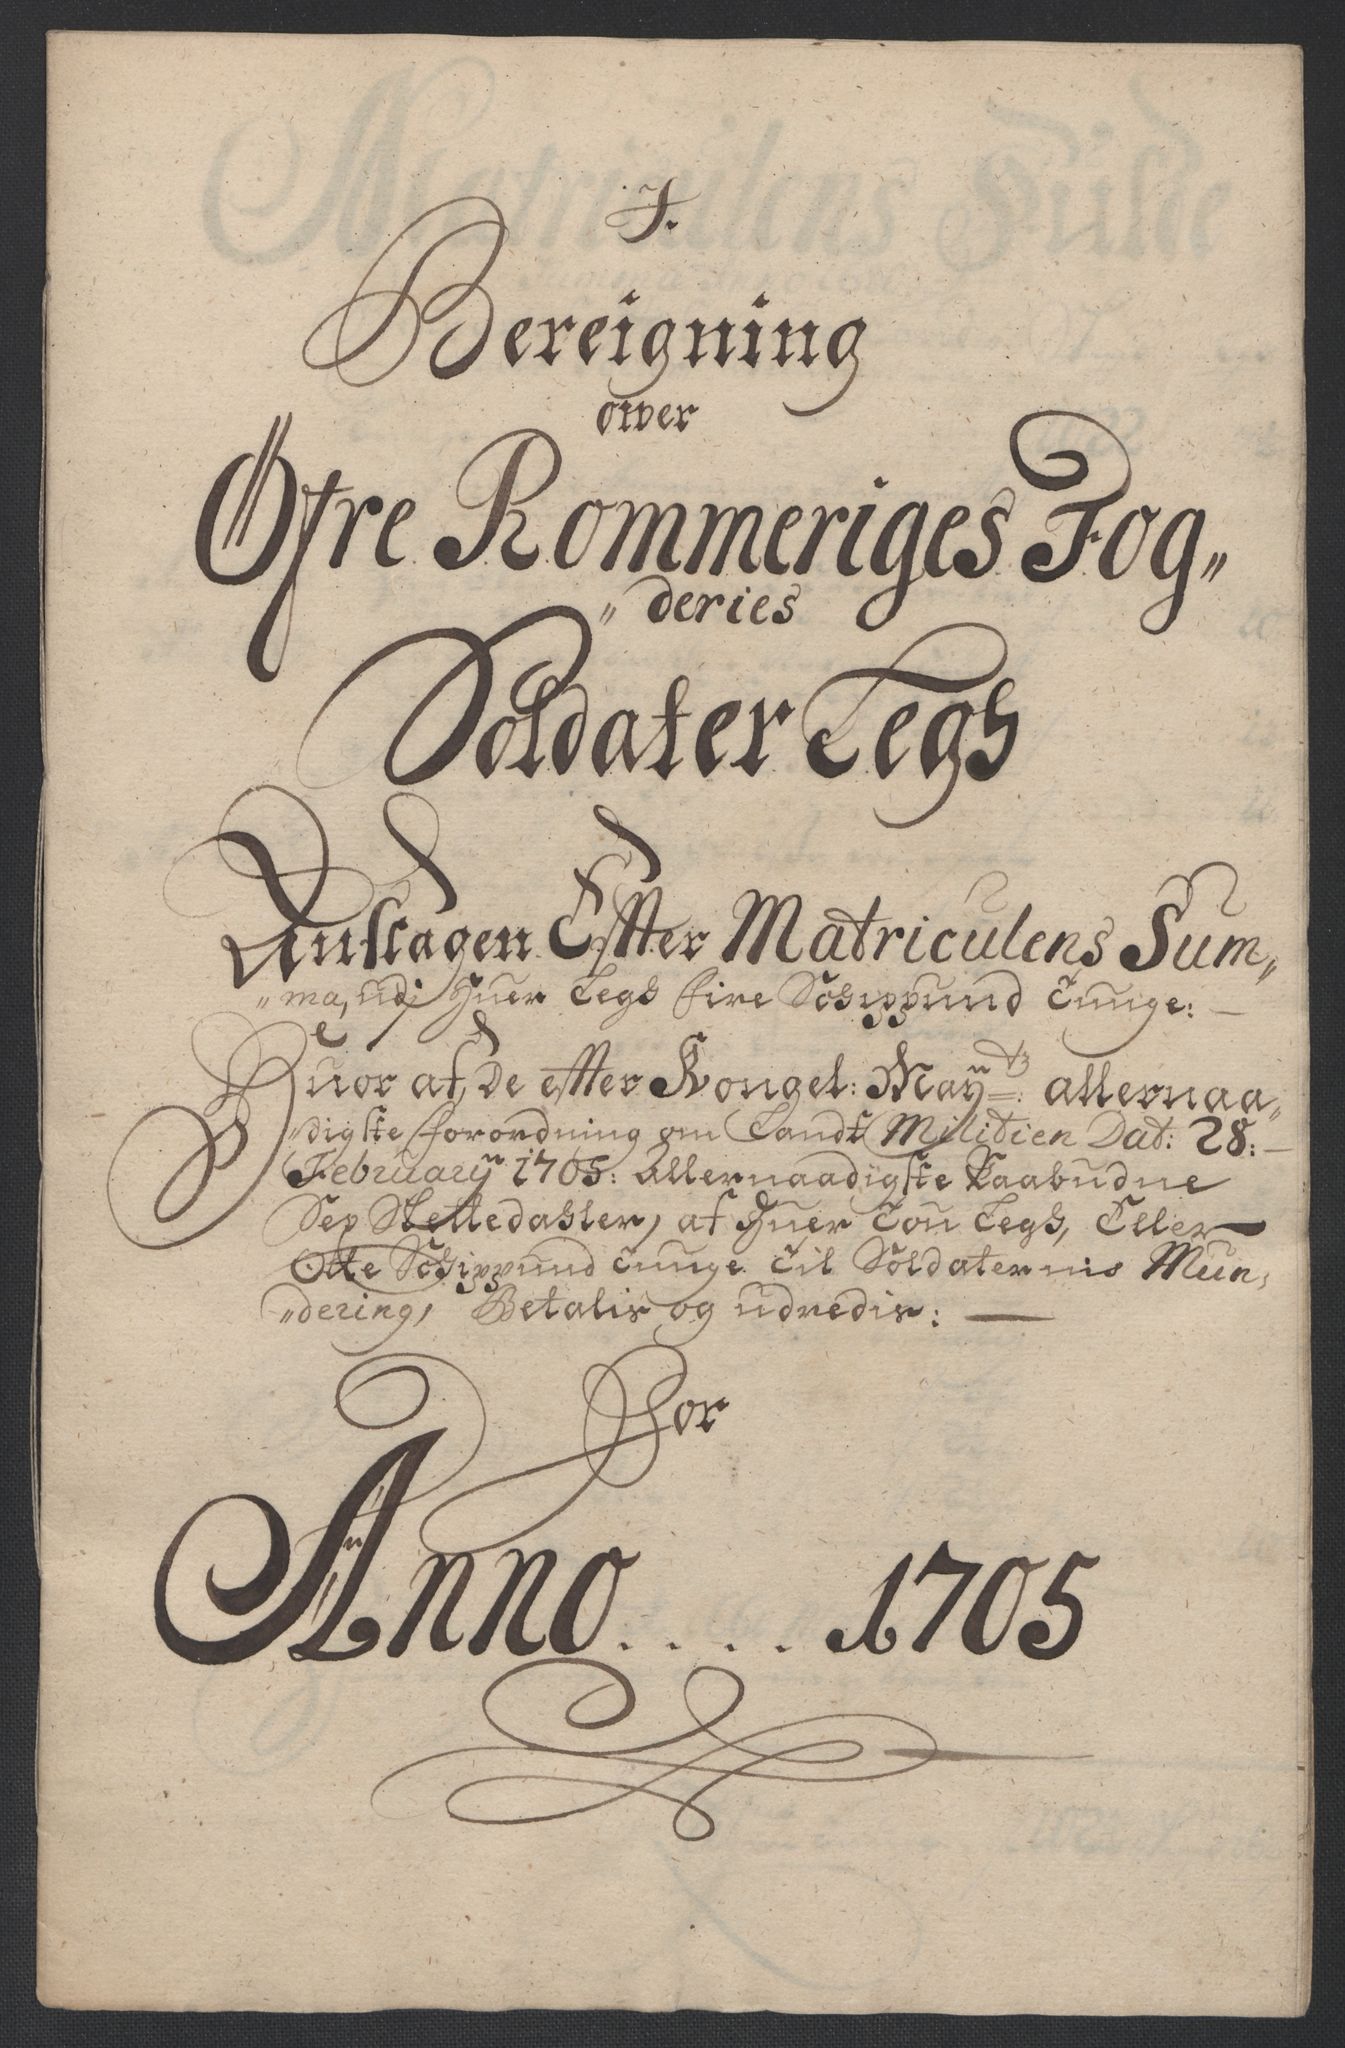 J.
Bereigning
over
Öfre Rommeriges Fog„
„deries
Soldater Legs
Anslagen Effter Matriculens Sum„
„ma, udj Huer Legs fire Schippund Tunge:
Huor af de effter Kongel: Mayts: allernaa„
„digste forordning om Landt Militien Dat: 28:
February 1705: allernaadigste Paabudne
Sex Slettedahler, af Huer Tou Legs, Eller
Otte Schippund tunge til Soldaternis Mun„
„dering, Betalis og udredis:
For
Anno.... 1705